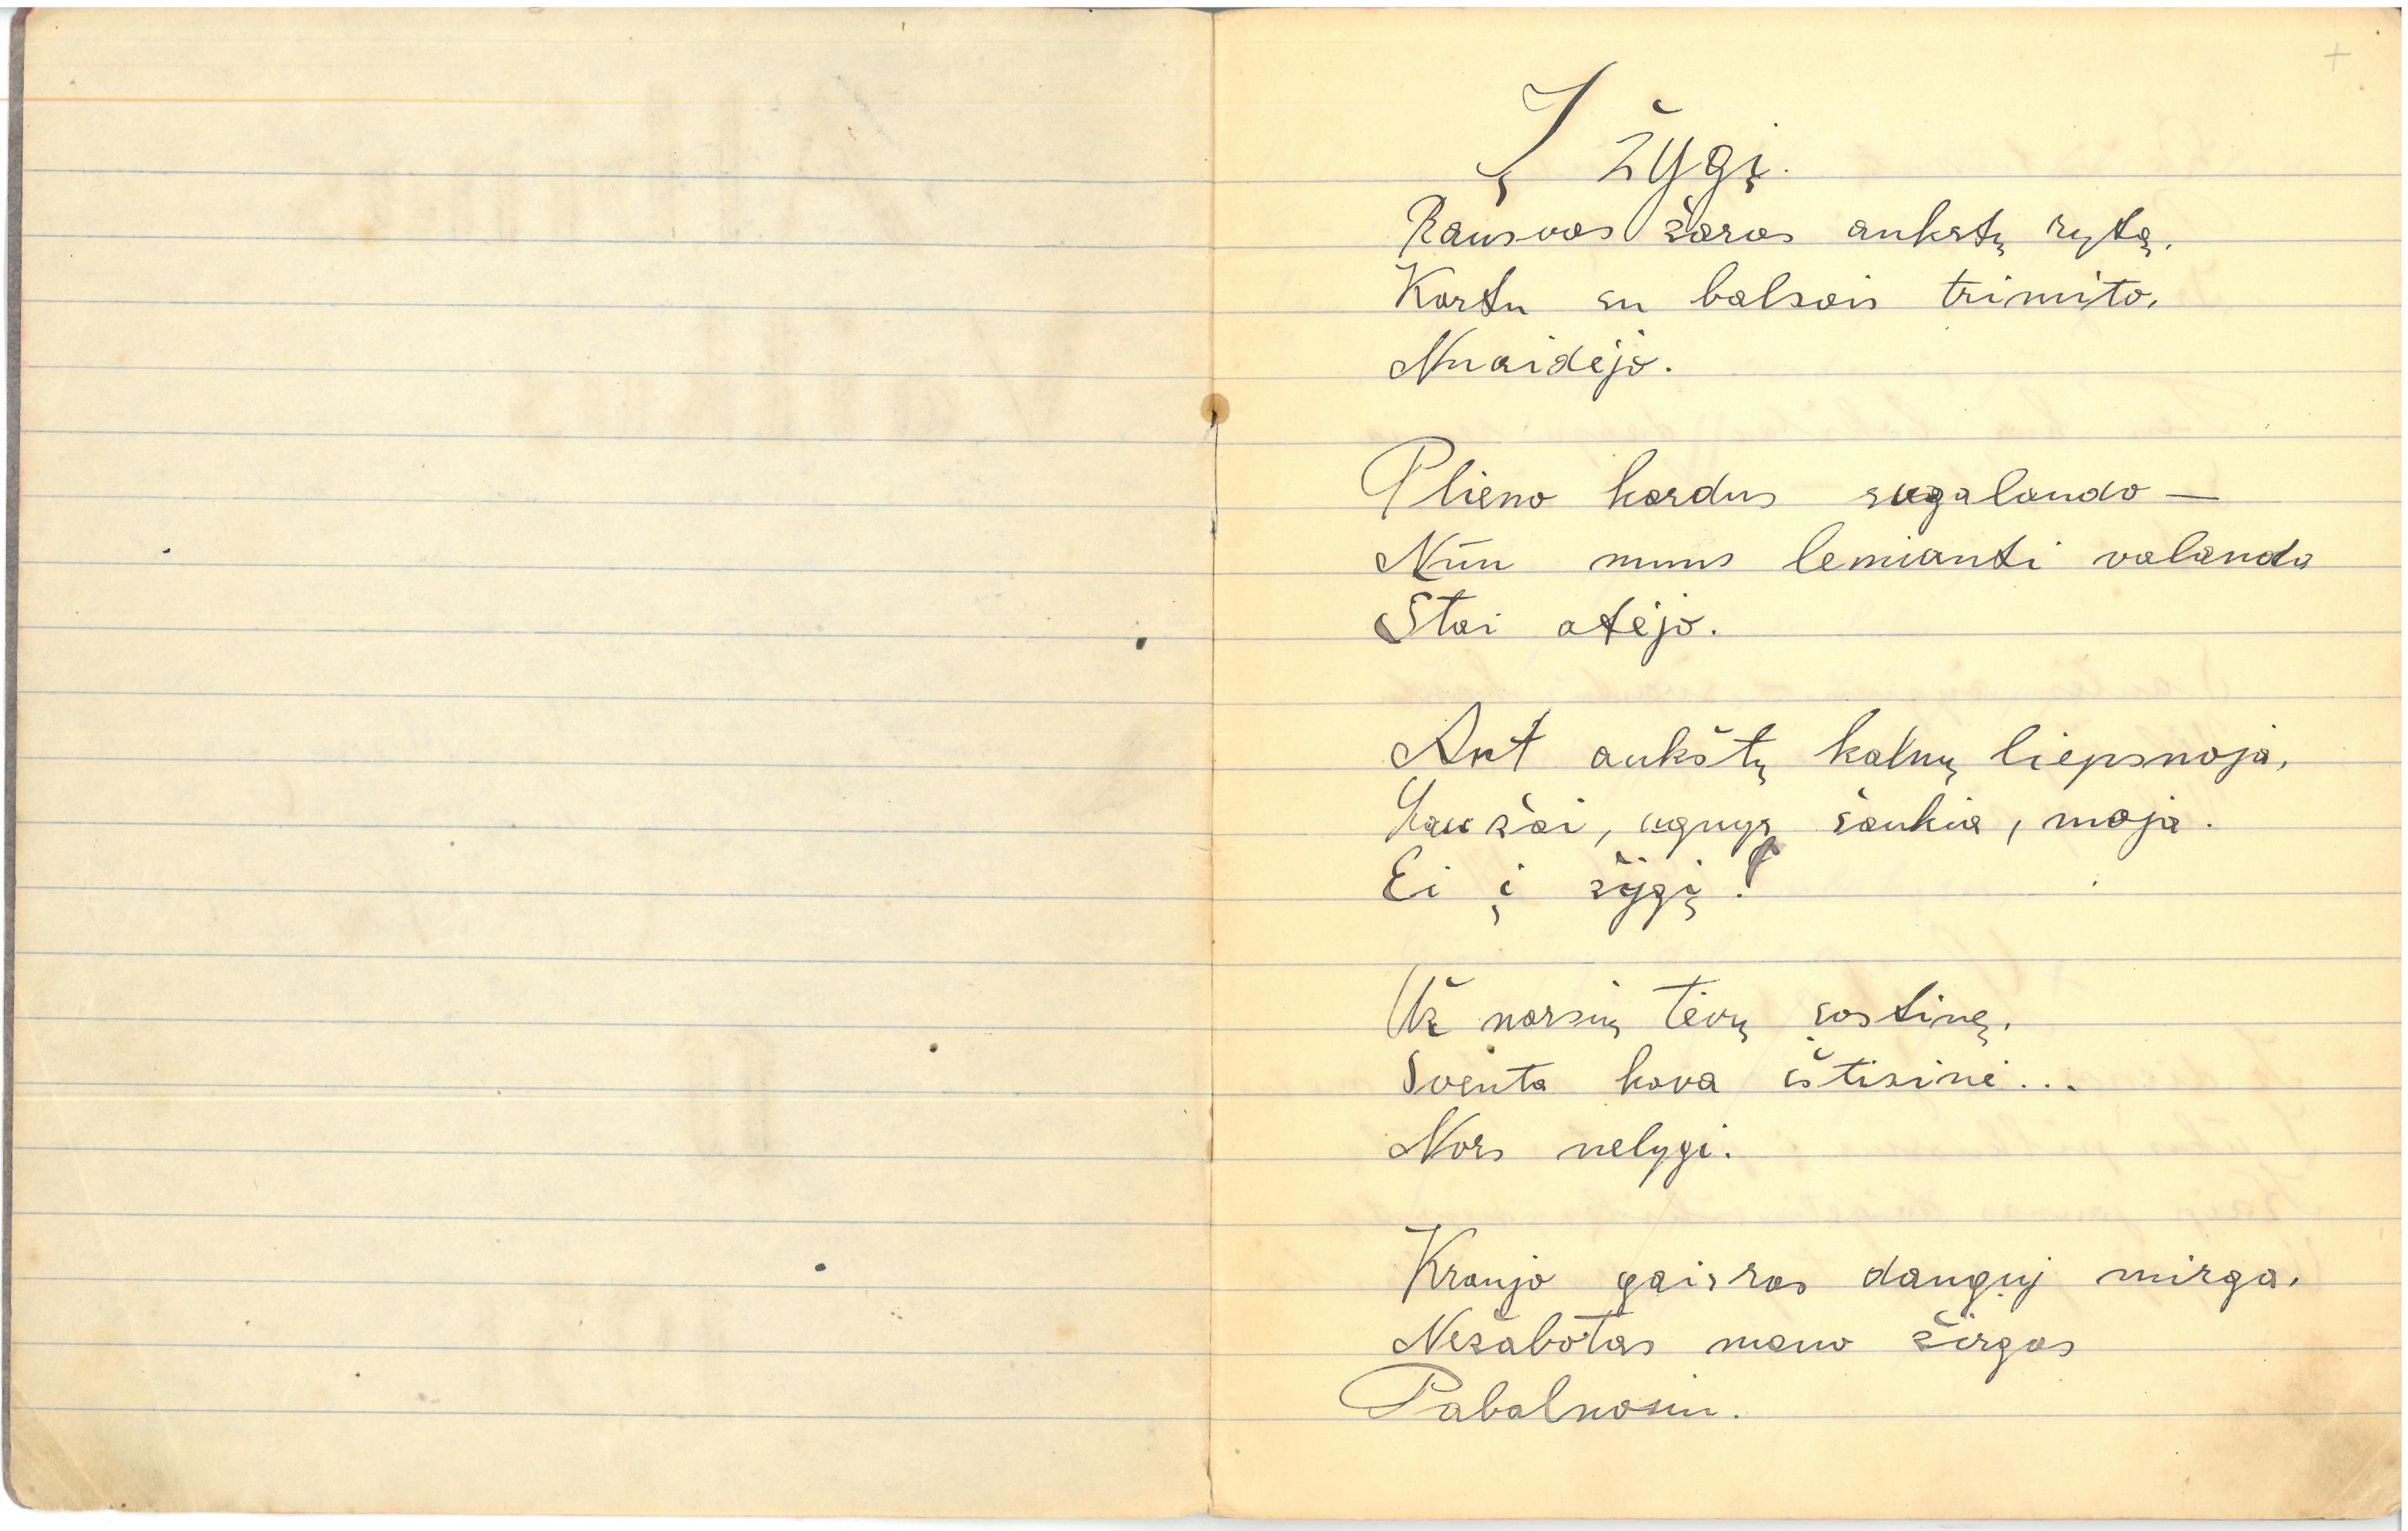 Į žygį.
Rausvos žaros ankstų rytą,
Kartu su balsais trimito,
Nuaidėjo.
Plieno kardus sugalando —
Nūn mums lemianti valanda
Štai atėjo.
Ant aukštų kalnų liepsnoja,
Laužai, ugnys šaukia, moja.
Ei į žygį!
Už narsių tėvų sostinę,
Šventa kova ištisinė...
Nors nelygi.
Kraujo gaisras danguj mirga,
Nežabotas mano žirgas
Pabalnosiu.